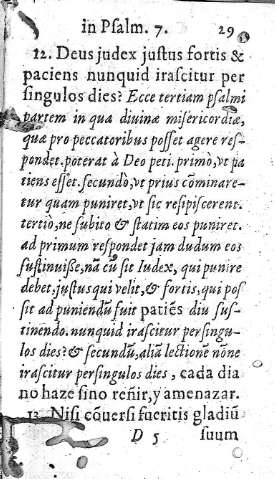 in Psalm. 7. 29
12. Deus judex justus fortis &
paciens nunquid irascitur per
singulos dies? Ecce tertiam psalmi
partem in qua divinæ misericordiæ,
quæ pro peccatoribus posset agere res-
pondet. poterat à Deo peti. primò, vt pa
tiens esset. secundò, vt prius cõminare-
tur quam puniret, vt sic resipiscerent.
tertiò, ne subito & statim eos puniret.
ad primum respondet jam dudum eos
sustinuisse, nã cũ sit Iudex, qui punire
debet, justus qui velit, & fortis, qui pos
sit ad puniendũ fuit patiẽs diu sus-
tinendo. nunquid irascitur per singu-
los dies? & secundũ, aliã lectionẽ nõne
irascitur per singulos dies, cada dia
no haze sino reñir, y amenazar.
13. Nisi cõuersi fueritis gladiũ
D 5 suum